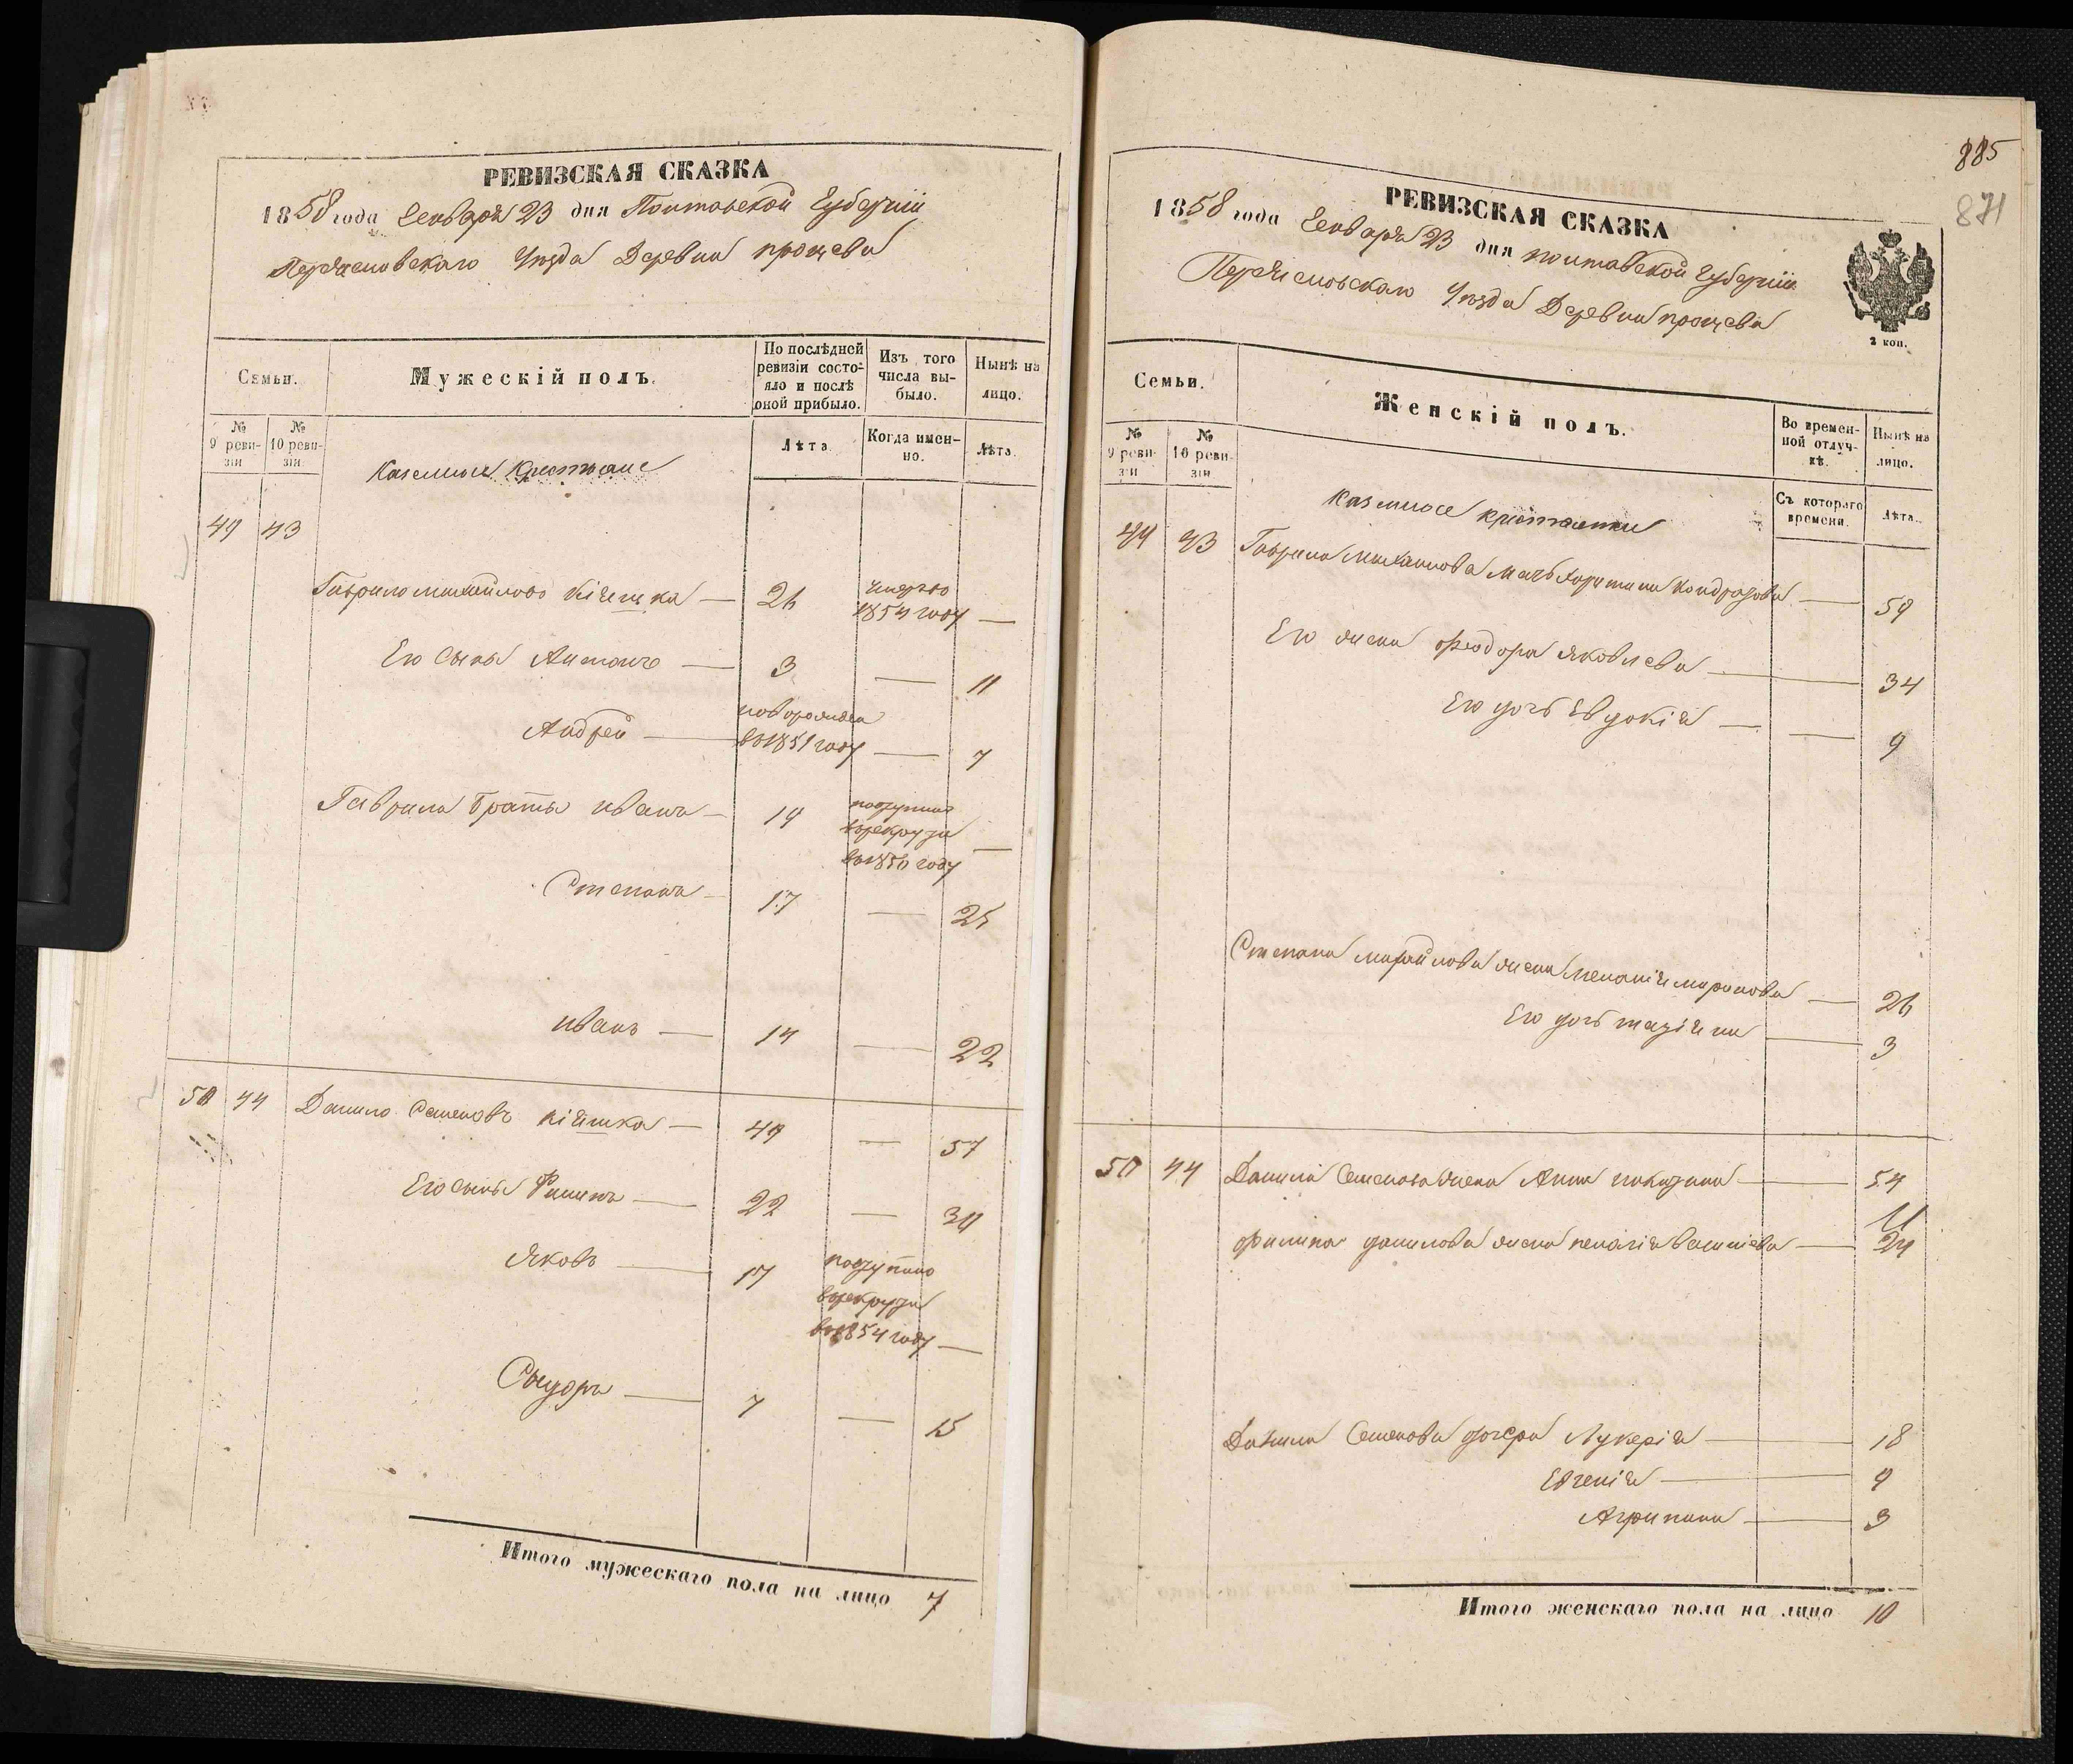 РЕВИЗСКАЯ СКАЗКА
1858 года Генваря 23 дня Полтавской Губернии
Переяславскаго Уезда Деревни процева
Семьи.
Мужескій полъ.
По послѣдней ревизіи состояло и послѣ оной прибыло.
Изъ того числа выбыло.
Нынѣ на лицо.
№ 9 ревизіи
№ 10 ревизіи
Казенные Крестьяне
Лѣта
Когда именно.
Лѣта.
49 43
Гаврило михайловъ — 26 умерло 1854 году —
Его сыны Антонъ — 3 — 11
Андрей — новорожден въ 1851 году — 7
Гаврила братья иванъ — 19 поступил в рекруты в 1850 году —
Степанъ — 17 — 25
иванъ — 14 — 22
50 44 Данило Семеновъ — 49 — 57
Его сыны Филипъ — 22 — 30
Яковъ — 17 поступило в рекруты в 1854 году —
Сидоръ — 7 — 15
Итого мужескаго пола на лицо 7
885
871
РЕВИЗСКАЯ СКАЗКА
1858 года Генваря 23 дня полтавской Губернии
Переяславскаго Уезда Деревни процева
2 коп.
Семьи.
Женскій полъ.
Во временной отлучкѣ.
Нынѣ на лицо.
№ 9 ревизіи
№ 10 ревизіи
Казенные крестьянки
Съ котораго времени.
Лѣта.
49 43 Гаврила михайлова мать Кондратова — 59
Его жена Феодора Яковлева — 34
Его дочь Евдокія — 9
Степана михайлова жена меланія миронова — 26
Его дочь — 3
50 44 Данила Семенова жена Анна — 54
филипа данилова жена — 24
Данила Семенова дочери Лукерія — 18
Евгенія — 9
Агрипина — 3
Итого женскаго пола на лицо 10